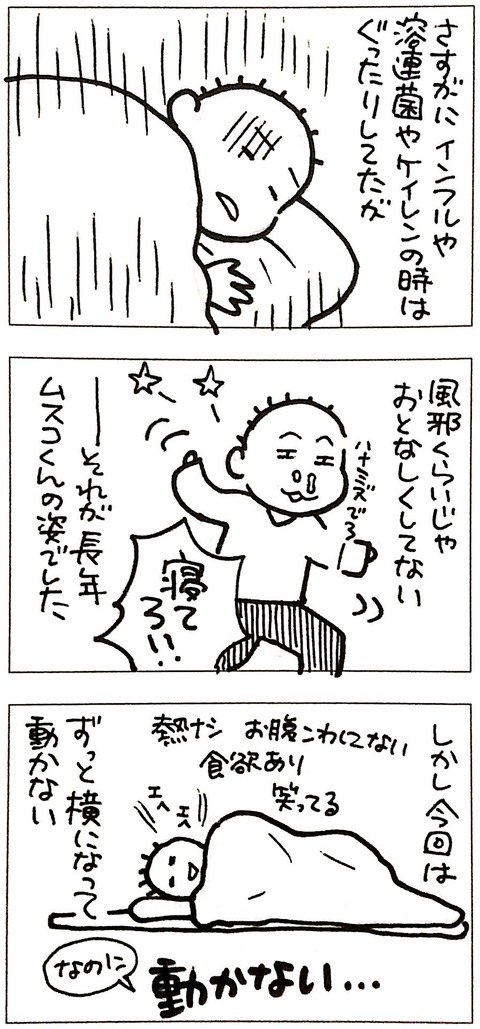 さすがに インフルや
溶連菌やケイレンの時は
ぐったりしてたが
風邪くらいじゃ
おとなしくしてない
ハナミズでる
寝て
ろ!!
── それが長年
ムスコくんの姿でした
しかし今回は
熱ナシ お腹こわしてない
食欲あり
笑ってる
エヘ
エヘ
ずっと横になって
動かない
なのに
動かない...